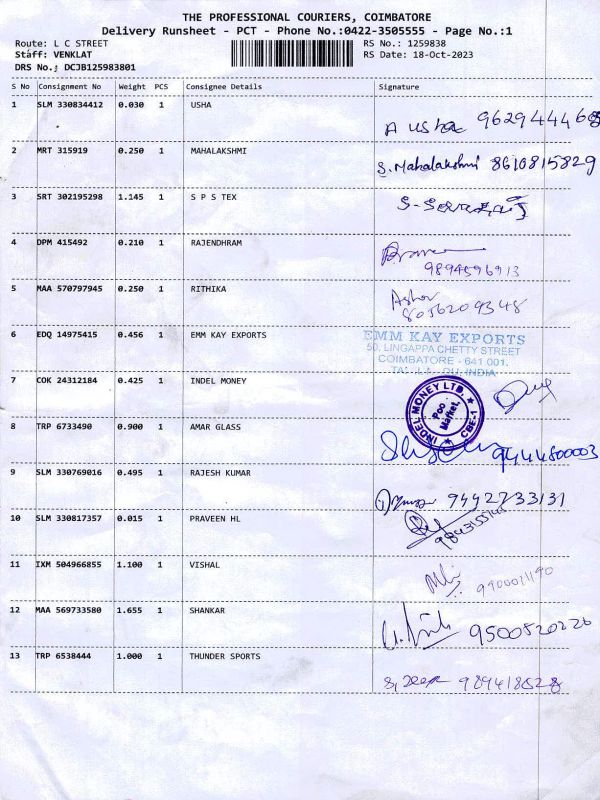 THE PROFESSIONAL COURIERS, COIMBATORE
Delivery Runsheet - PCT - Phone No.:0422-3505555 - Page No.:1
Route: L C STREET RS No.: 1259838
Staff: VENKLAT RS Date: 18-Oct-2023
DRS No.: DCJB125983801
S No Consignment No Weight PCS Consignee Details Signature
1 SLM 330834412 0.030 1 USHA
A Usha 9629444468
2 MRT 315919 0.250 1 MAHALAKSHMI
S. Mahalakshmi 8610815829
3 SRT 302195298 1.145 1 S P S TEX
4 DPM 415492 0.210 1 RAJENDHRAM
9894596913
5 MAA 570797945 0.250 1 RITHIKA
8056209348
6 EDQ 14975415 0.456 1 EMM KAY EXPORTS
EMM KAY EXPORTS
50, LINGAPPA CHETTY STREET
COIMBATORE - 641 001,
INDIA
7 COK 24312184 0.425 1 INDEL MONEY
INDEL MONEY LTD.
Poo Market,
CBE-1
8 TRP 6733490 0.900 1 AMAR GLASS
9444800003
9 SLM 330769016 0.495 1 RAJESH KUMAR
9442733131
10 SLM 330817357 0.015 1 PRAVEEN HL
11 IXM 504966855 1.100 1 VISHAL
12 MAA 569733580 1.655 1 SHANKAR
9500520226
13 TRP 6538444 1.000 1 THUNDER SPORTS
989418528